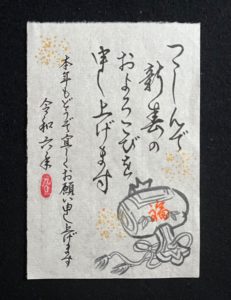 つつしんで
新春の
およろこびを
申し上げます
本年もどうぞ宜しくお願い申し上げます
令和六年
福